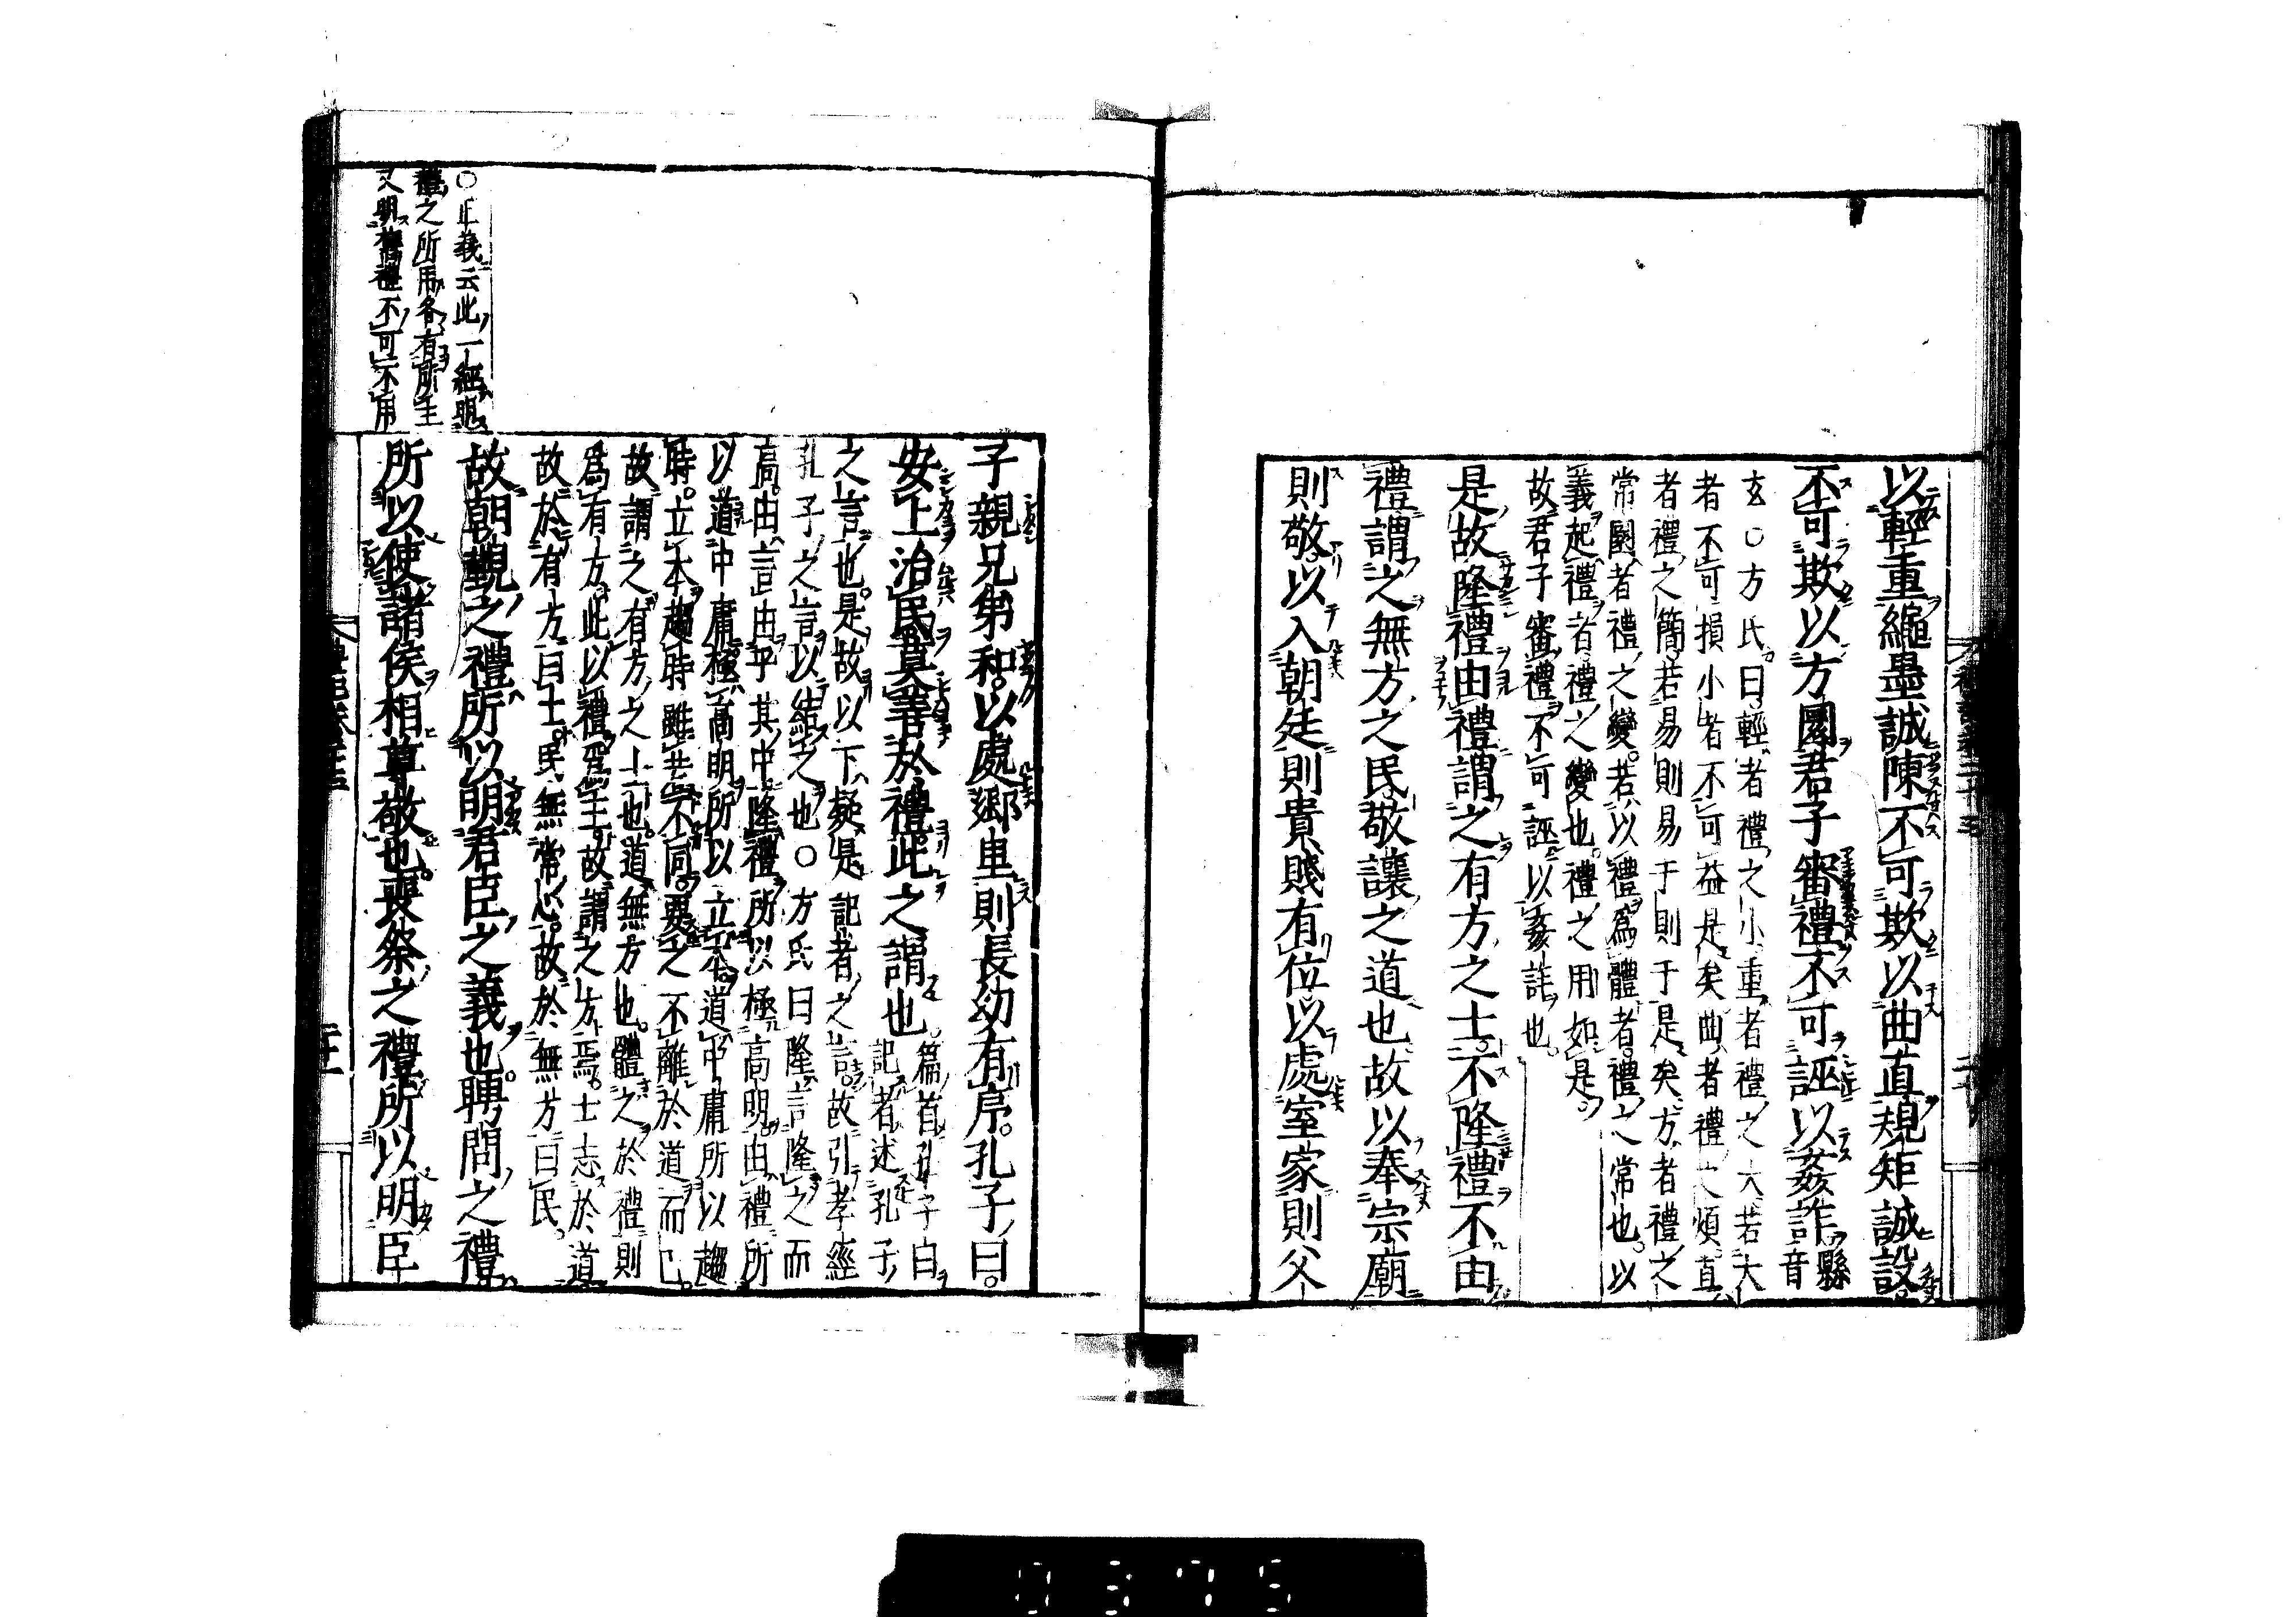 以輕重繩墨誠陳不可欺以曲直規矩誠設
不可欺以方圓君子審禮不可誣以姦詐縣音
玄○方氏曰輕者禮之小重者禮之大若大
者不可損小者不可益是矣曲者禮之煩直
者禮之簡若易則易于則于是矣方者禮之
常圓者禮之變若以禮爲體者禮之常也以
義起禮者禮之變也禮之用如是
故君子審禮不可誣以姦詐也
是故隆禮由禮謂之有方之士不隆禮不由
禮謂之無方之民敬讓之道也故以奉宗廟
則敬以入朝廷則貴賤有位以處室家則父
子親兄弟和以處鄉里則長幼有序孔子曰
安上治民莫善於禮此之謂也篇首孔子曰記者述孔子
之言也是故以下疑是記者之言故引孝經
孔子之言以結之也○方氏曰隆言隆之而
高由言由乎其中隆禮所以極高明由禮所
以道中庸極高明所以立本道中庸所以趨
時立本趨時雖若不同要之不離於道而已
故謂之有方之士也道無方也體之於禮則
爲有方此以禮爲主故謂之方焉士志於道
故於有方曰士民無常心故於無方曰民
故朝覲之禮所以明君臣之義也聘問之禮
所以使諸侯相尊敬也喪祭之禮所以明臣
○正義云此一經明
禮之所用各有所主
又明舊禮不可不用
0375